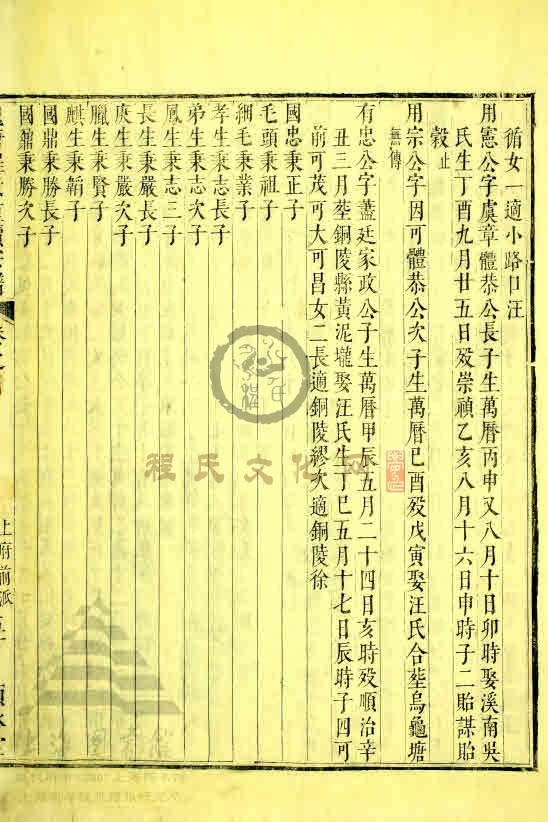 循女一適小路口汪
用憲公字虞章體恭公長子生萬曆丙申又八月十日卯時娶溪南吳
氏生丁酉九月廿五日歿崇禎乙亥八月十六日申時子二貽謀貽
穀止
用宗公字因可體恭公次子生萬曆已酉歿戊寅娶汪氏合塟烏龜塘
無傳
有忠公字藎廷家政公子生萬曆甲辰五月二十四日亥時歿順治辛
丑三月塟銅陵縣黃泥壠娶汪氏生丁巳五月十七日辰時子四可
前可茂可大可昌女二長適銅陵繆次適銅陵徐
國忠秉正子
毛頭秉祖子
細毛秉業子
孝生秉志長子
弟生秉志次子
鳳生秉志三子
長生秉嚴長子
庚生秉嚴次子
臘生秉賢子
麒生秉韜子
國鼎秉勝長子
國鼐秉勝次子
上府前派
程氏文化网